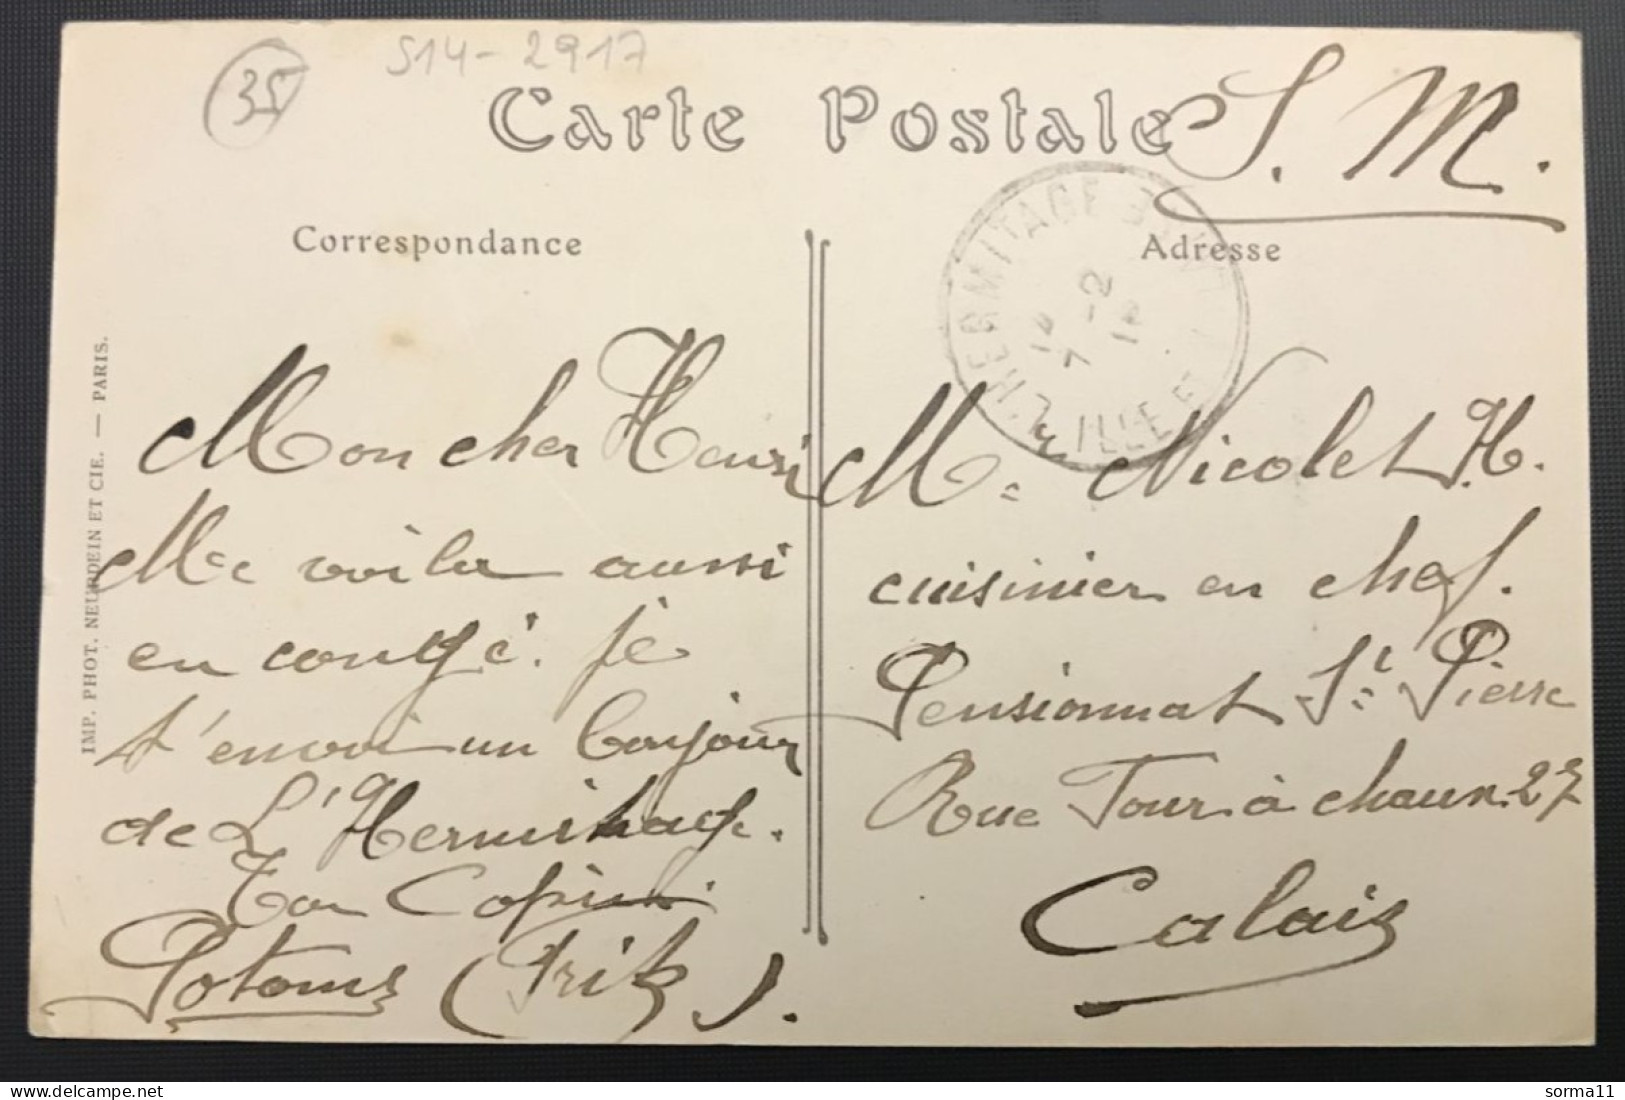 35
S14-2917
Carte Postale
S. M.
Correspondance
Adresse
L'HERMITAGE
14
7 -2
ILLE
IMP. PHOT. NEURDEIN ET CIE. — PARIS.
Mon cher Henri
Me voila aussi
en congé. je
t'envoi un bonjour
de L'Hermitage.
Ton Copin
Potoms (Frik).
Mr. Nicolet H.
cuisinier en chef.
Pensionnat St Pierre
Rue Tour à chaux 27
Calais
sorma11